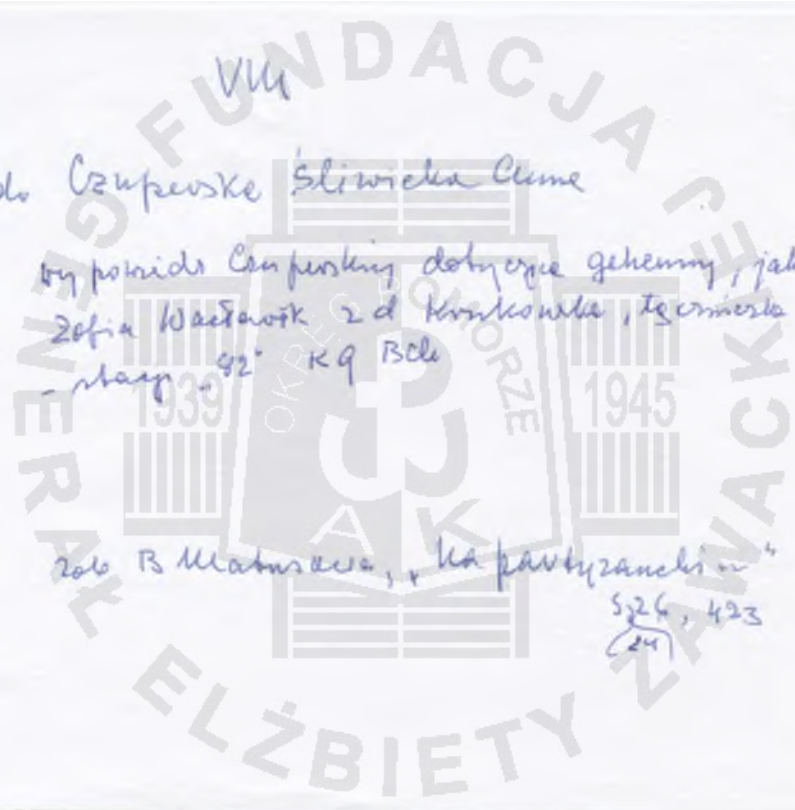 VIII
do Czuperska Śliwicka
wypowiedź Czuperskiej dotycząca gehenny, jak
Zofia Wacławik z d , łączniczka
- stacji „82" KG BCh
zob B Matusowa, „Na partyzancki "
S,26, 423
(24)
FUNDACJA GENERAŁ ELŻBIETY ZAWACKIEJ
OKRĘG POMORZE
1939 1945
AK